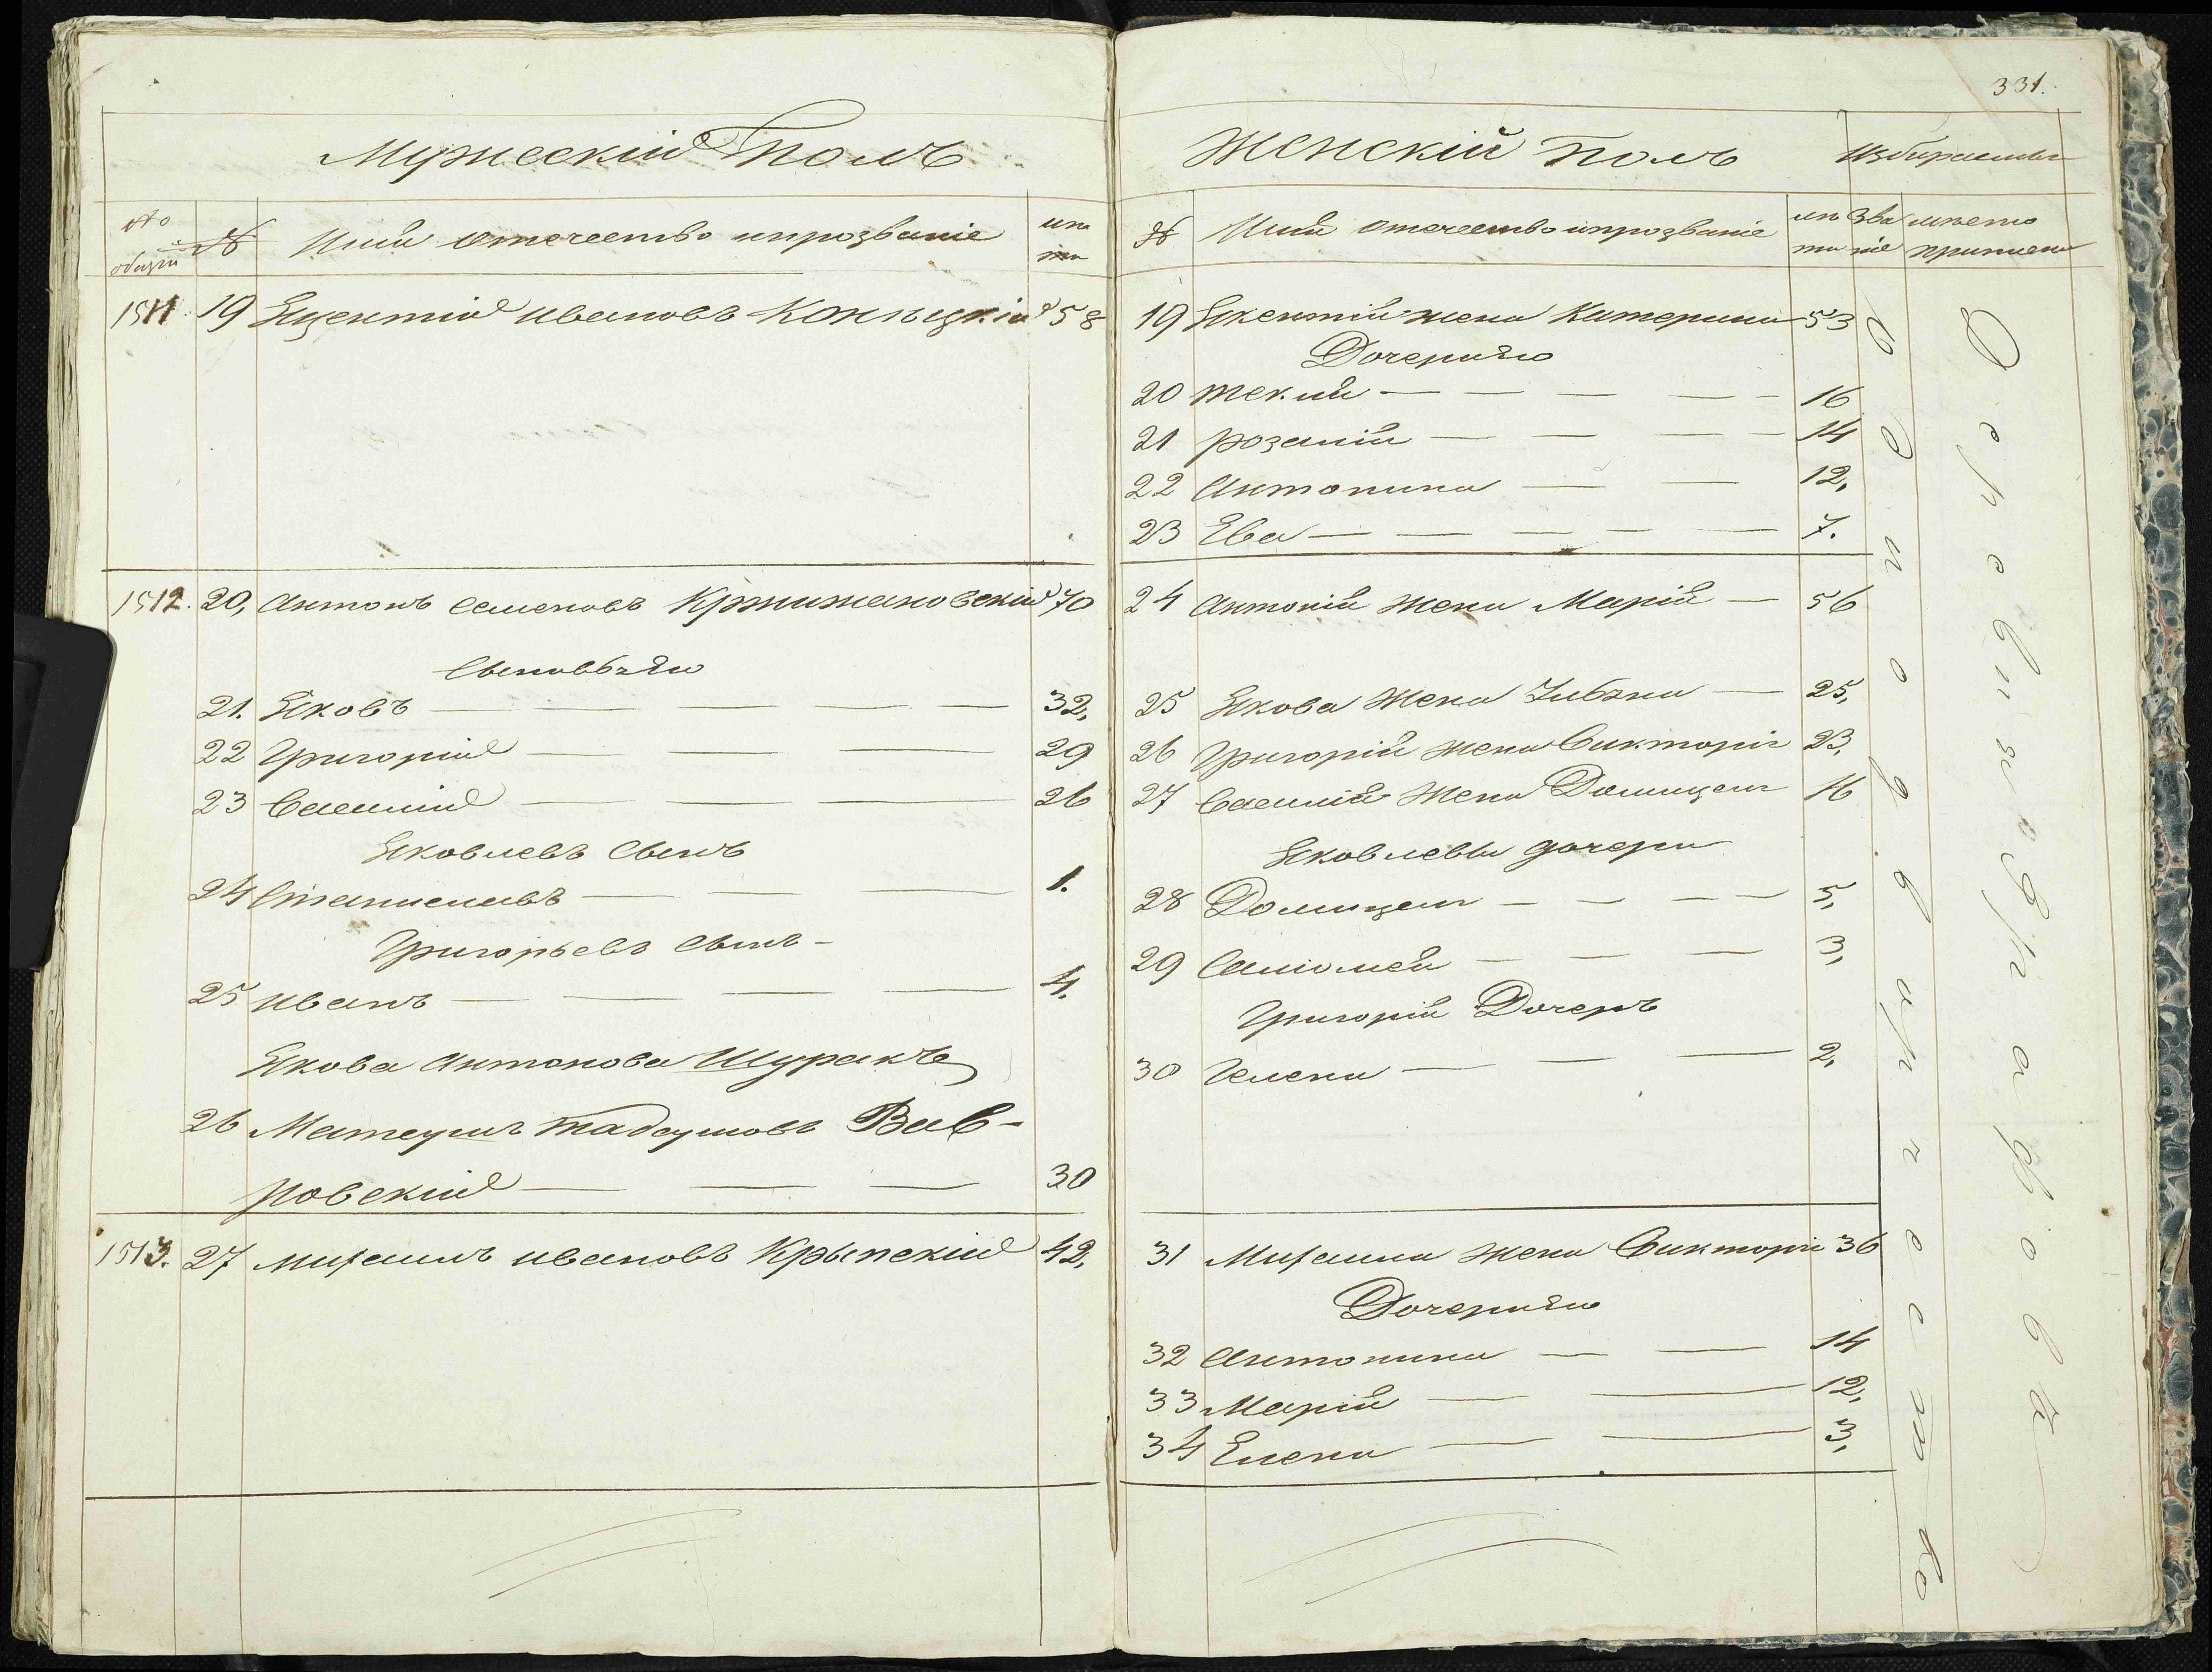 331.
Мужескій Полъ
№ общій
№
Имя отечество и прозваніе
лѣта
1511. 19 Яцентій Ивановъ Конецкій 58
1512. 20, Антонъ Семеновъ Кржижановскій 70
Сыновья Его
21. Яковъ 32,
22 Григорій 29
23 Василій 26
Яковлевъ Сынъ
24 Станиславъ 1.
Григорьевъ Сынъ
25 Иванъ 4.
Якова Антонова Шуракъ
26 Матеушъ Тадеушовъ Вав-
ровскій 30
1513. 27 Михаилъ Ивановъ Крыпскій 42,
Женскій Полъ
Избираемыя
№
Имя отечество и прозваніе
лѣта
Званіе
мѣсто приписки
19 Якентія жена Катерина 53
Дочери Его
20 Текля 16
21 Розалія 14
22 Антонина 12,
23 Ева 7.
24 Антонія Жена Марія 56
25 Якова Жена 25,
26 Григорія Жена Викторія 23,
27 Василія Жена Домицеля 16
Яковлевы дочери
28 Домицеля 5,
29 Саломея 3,
Григорія Дочеръ
30 Гелена 2,
31 Михаила Жена Викторія 36
Дочери Его
32 Антонина 14
33 Марія 12,
34 Елена 3,
Однодварческо